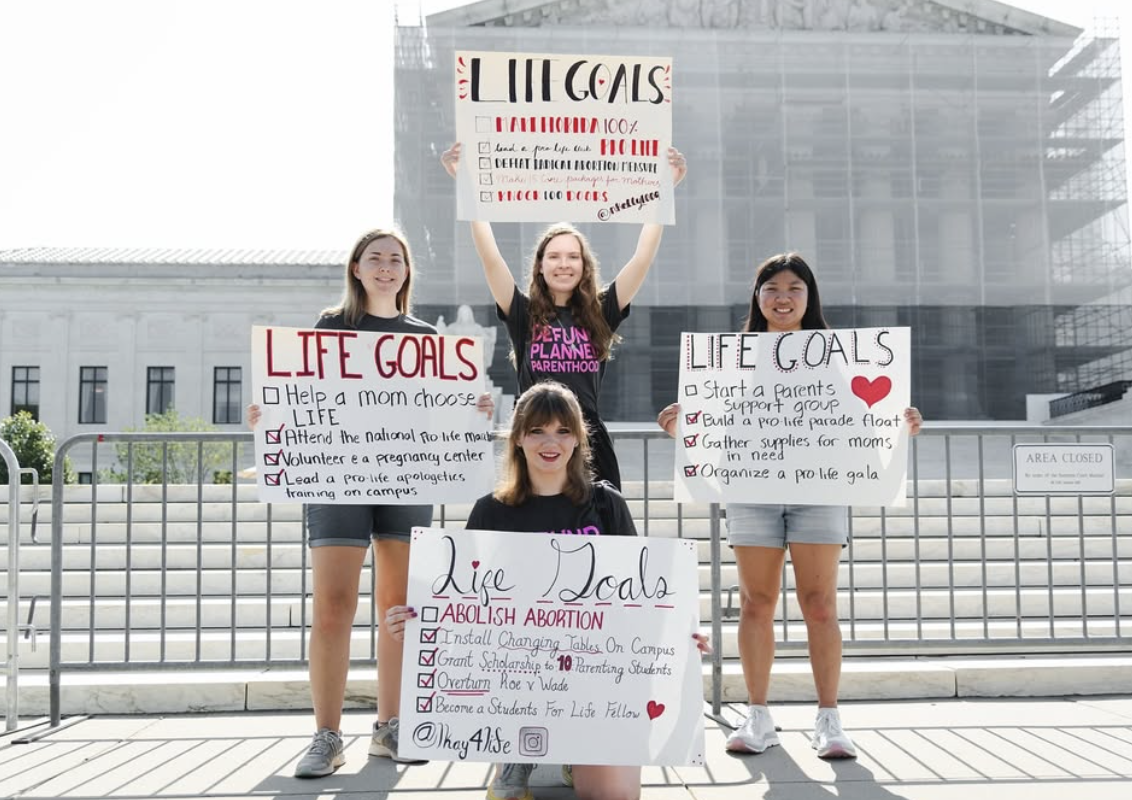 LIFE GOALS
MAKE FLORIDA 100%
Lead a pro-life club PRO LIFE
DEFEAT RADICAL ABORTION MEASURE
Make 15 Care packages for mothers
KNOCK 100 DOORS
DEFUND
PLANNED
PARENTHOOD
LIFE GOALS
Help a mom choose
LIFE
Attend the national pro life march
Volunteer @ a pregnancy center
Lead a pro-life apologetics
training on campus
LIFE GOALS
Start a parents
support group
Build a pro-life parade float
Gather supplies for moms
in need
Organize a pro life gala
AREA CLOSED
Life Goals
ABOLISH ABORTION
Install Changing Tables On Campus
Grant Scholarship to 10 Parenting Students
Overturn Roe v Wade
Become a Students For Life Fellow
@lkay4life